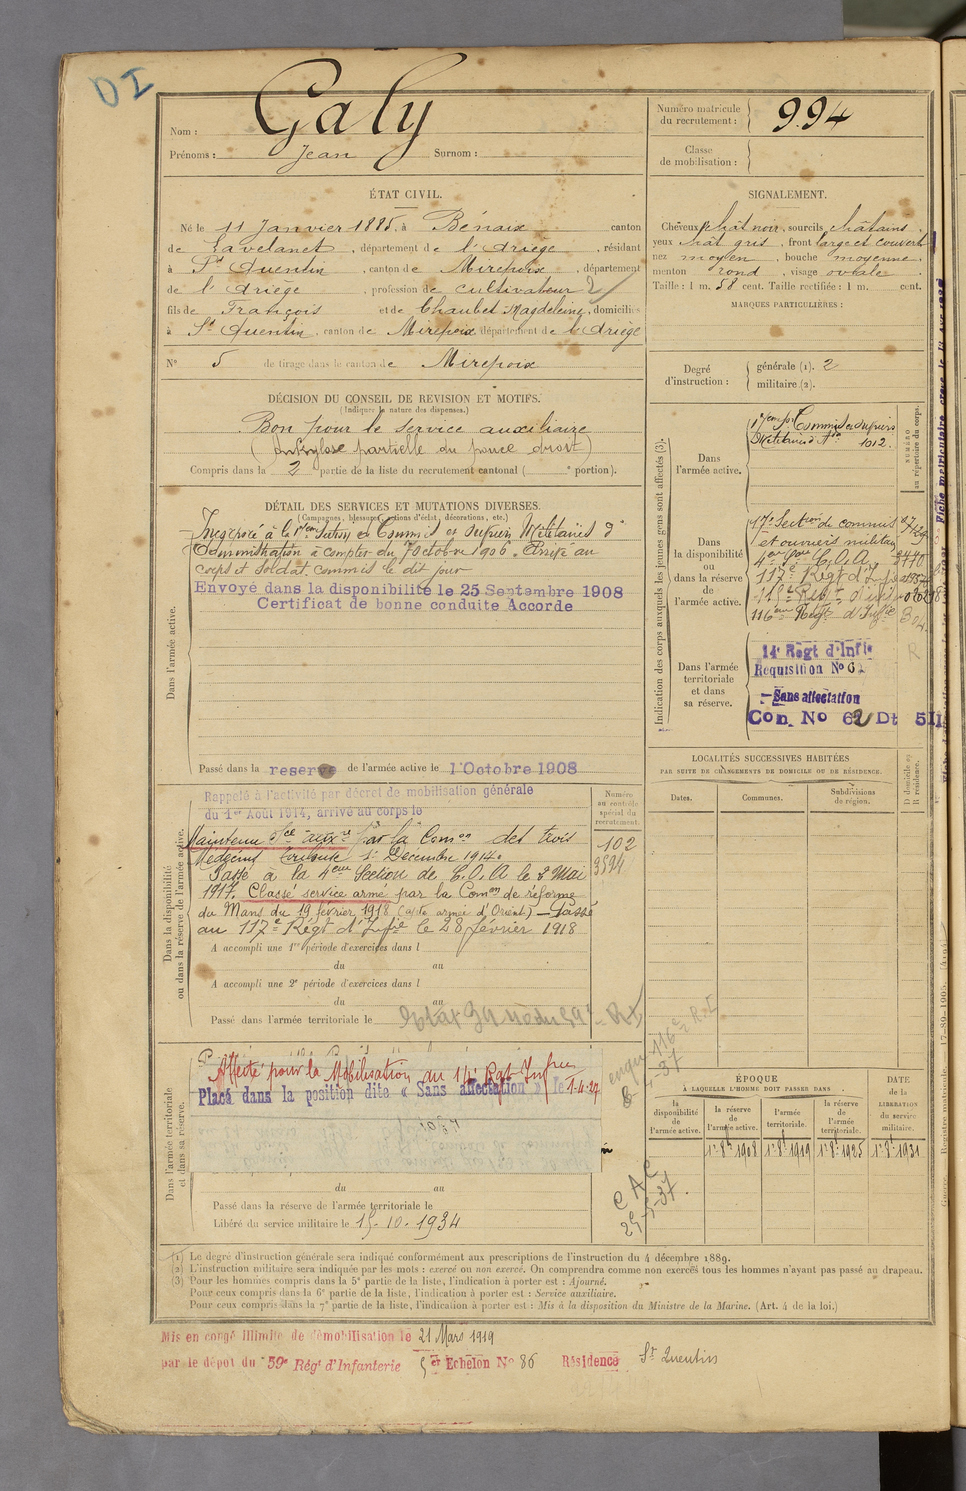 DI
Nom : Galy
Prénoms : Jean Surnom :
Numéro matricule du recrutement : 994
Classe de mobilisation :
ÉTAT CIVIL.
Né le 11 Janvier 1885, à Bénaix canton
de Lavelanet, département de l'Ariège, résidant
à St Quentin, canton de Mirepoix, département
de l'Ariège, profession de cultivateur 2
fils de François et de Chaubet Magdeleine, domiciliés
à St Quentin, canton de Mirepoix département de l'Ariège
No 5 de tirage dans le canton de Mirepoix
SIGNALEMENT.
Cheveux chât noir, sourcils châtains,
yeux chât gris, front large et couvert
nez moyen, bouche moyenne,
menton rond, visage ovale.
Taille : 1 m. 58 cent. Taille rectifiée : 1 m. cent.
MARQUES PARTICULIÈRES :
Degré d'instruction :
générale (1). 2
militaire (2).
DÉCISION DU CONSEIL DE REVISION ET MOTIFS.
(Indiquer la nature des dispenses.)
Bon pour le service auxiliaire
(Ankylose partielle du pouce droit)
Compris dans la 2 partie de la liste du recrutement cantonal ( e portion).
DÉTAIL DES SERVICES ET MUTATIONS DIVERSES.
(Campagnes, blessures, actions d'éclat, décorations, etc.)
Incorporé à la 17eme Section de Commis et ouvriers Militaires d'
administration à compter du 7 octobre 1906. Arrivé au
corps et soldat commis le dit jour
Envoyé dans la disponibilité le 25 Septembre 1908
Certificat de bonne conduite Accordé
Dans l'armée active.
Passé dans la reserve de l'armée active le 1 Octobre 1908
Indication des corps auxquels les jeunes gens sont affectés (3).
Dans l'armée active.
1012.
NUMÉRO au répertoire du corps.
Dans la disponibilité ou dans la réserve de l'armée active.
17e Section de commis
et ouvriers militaires
117e Régt d'Infie
116eme Régt d'Infie
Dans l'armée territoriale et dans sa réserve.
14e Regt d'Infie
Requisition No 62
Sans affectation
Con. No 62 Dt 511
R
LOCALITÉS SUCCESSIVES HABITÉES
PAR SUITE DE CHANGEMENTS DE DOMICILE OU DE RÉSIDENCE.
Dates. Communes. Subdivisions de région.
D domicile ou R résidence.
Dans la disponibilité ou dans la réserve de l'armée active.
Rappelé à l'activité par décret de mobilisation générale
du 1er Août 1914, arrivé au corps le
Maintenu Sce auxre par la Comon des trois
Médecins Toulouse 1 Décembre 1914.
Passé à la 4eme Section de C.O.A le 2 Mai
1917. Classé service armé par la Comon de réforme
du Mans du 19 février 1918 (apte armée d'Orient) - Passé
au 117e Régt d'Infie le 28 février 1918
Numéro au contrôle spécial du recrutement.
102
3594
A accompli une 1re période d'exercices dans l
du au
A accompli une 2e période d'exercices dans l
du au
Passé dans l'armée territoriale le
Dans l'armée territoriale et dans sa réserve.
Affecté pour la Mobilisation au 14e Rgt Infrie
Placé dans la position dite « Sans affectation » le 1-4-27
du au
Passé dans la réserve de l'armée territoriale le
Libéré du service militaire le 15-10-1934
CAC
25-5-37.
ÉPOQUE
À LAQUELLE L'HOMME DOIT PASSER DANS
la disponibilité de l'armée active. la réserve de l'armée active. l'armée territoriale. la réserve de l'armée territoriale.
DATE de la LIBÉRATION du service militaire.
1er 8bre 1908 1er 8bre 1919 1er 8bre 1925 1er 8bre 1931
(1) Le degré d'instruction générale sera indiqué conformément aux prescriptions de l'instruction du 4 décembre 1889.
(2) L'instruction militaire sera indiquée par les mots : exercé ou non exercé. On comprendra comme non exercés tous les hommes n'ayant pas passé au drapeau.
(3) Pour les hommes compris dans la 5e partie de la liste, l'indication à porter est : Ajourné.
Pour ceux compris dans la 6e partie de la liste, l'indication à porter est : Service auxiliaire.
Pour ceux compris dans la 7e partie de la liste, l'indication à porter est : Mis à la disposition du Ministre de la Marine. (Art. 4 de la loi.)
Mis en congé illimité de démobilisation le 21 Mars 1919
par le dépôt du 59e Régt d'Infanterie 5er Echelon No 86 Résidence St Quentin